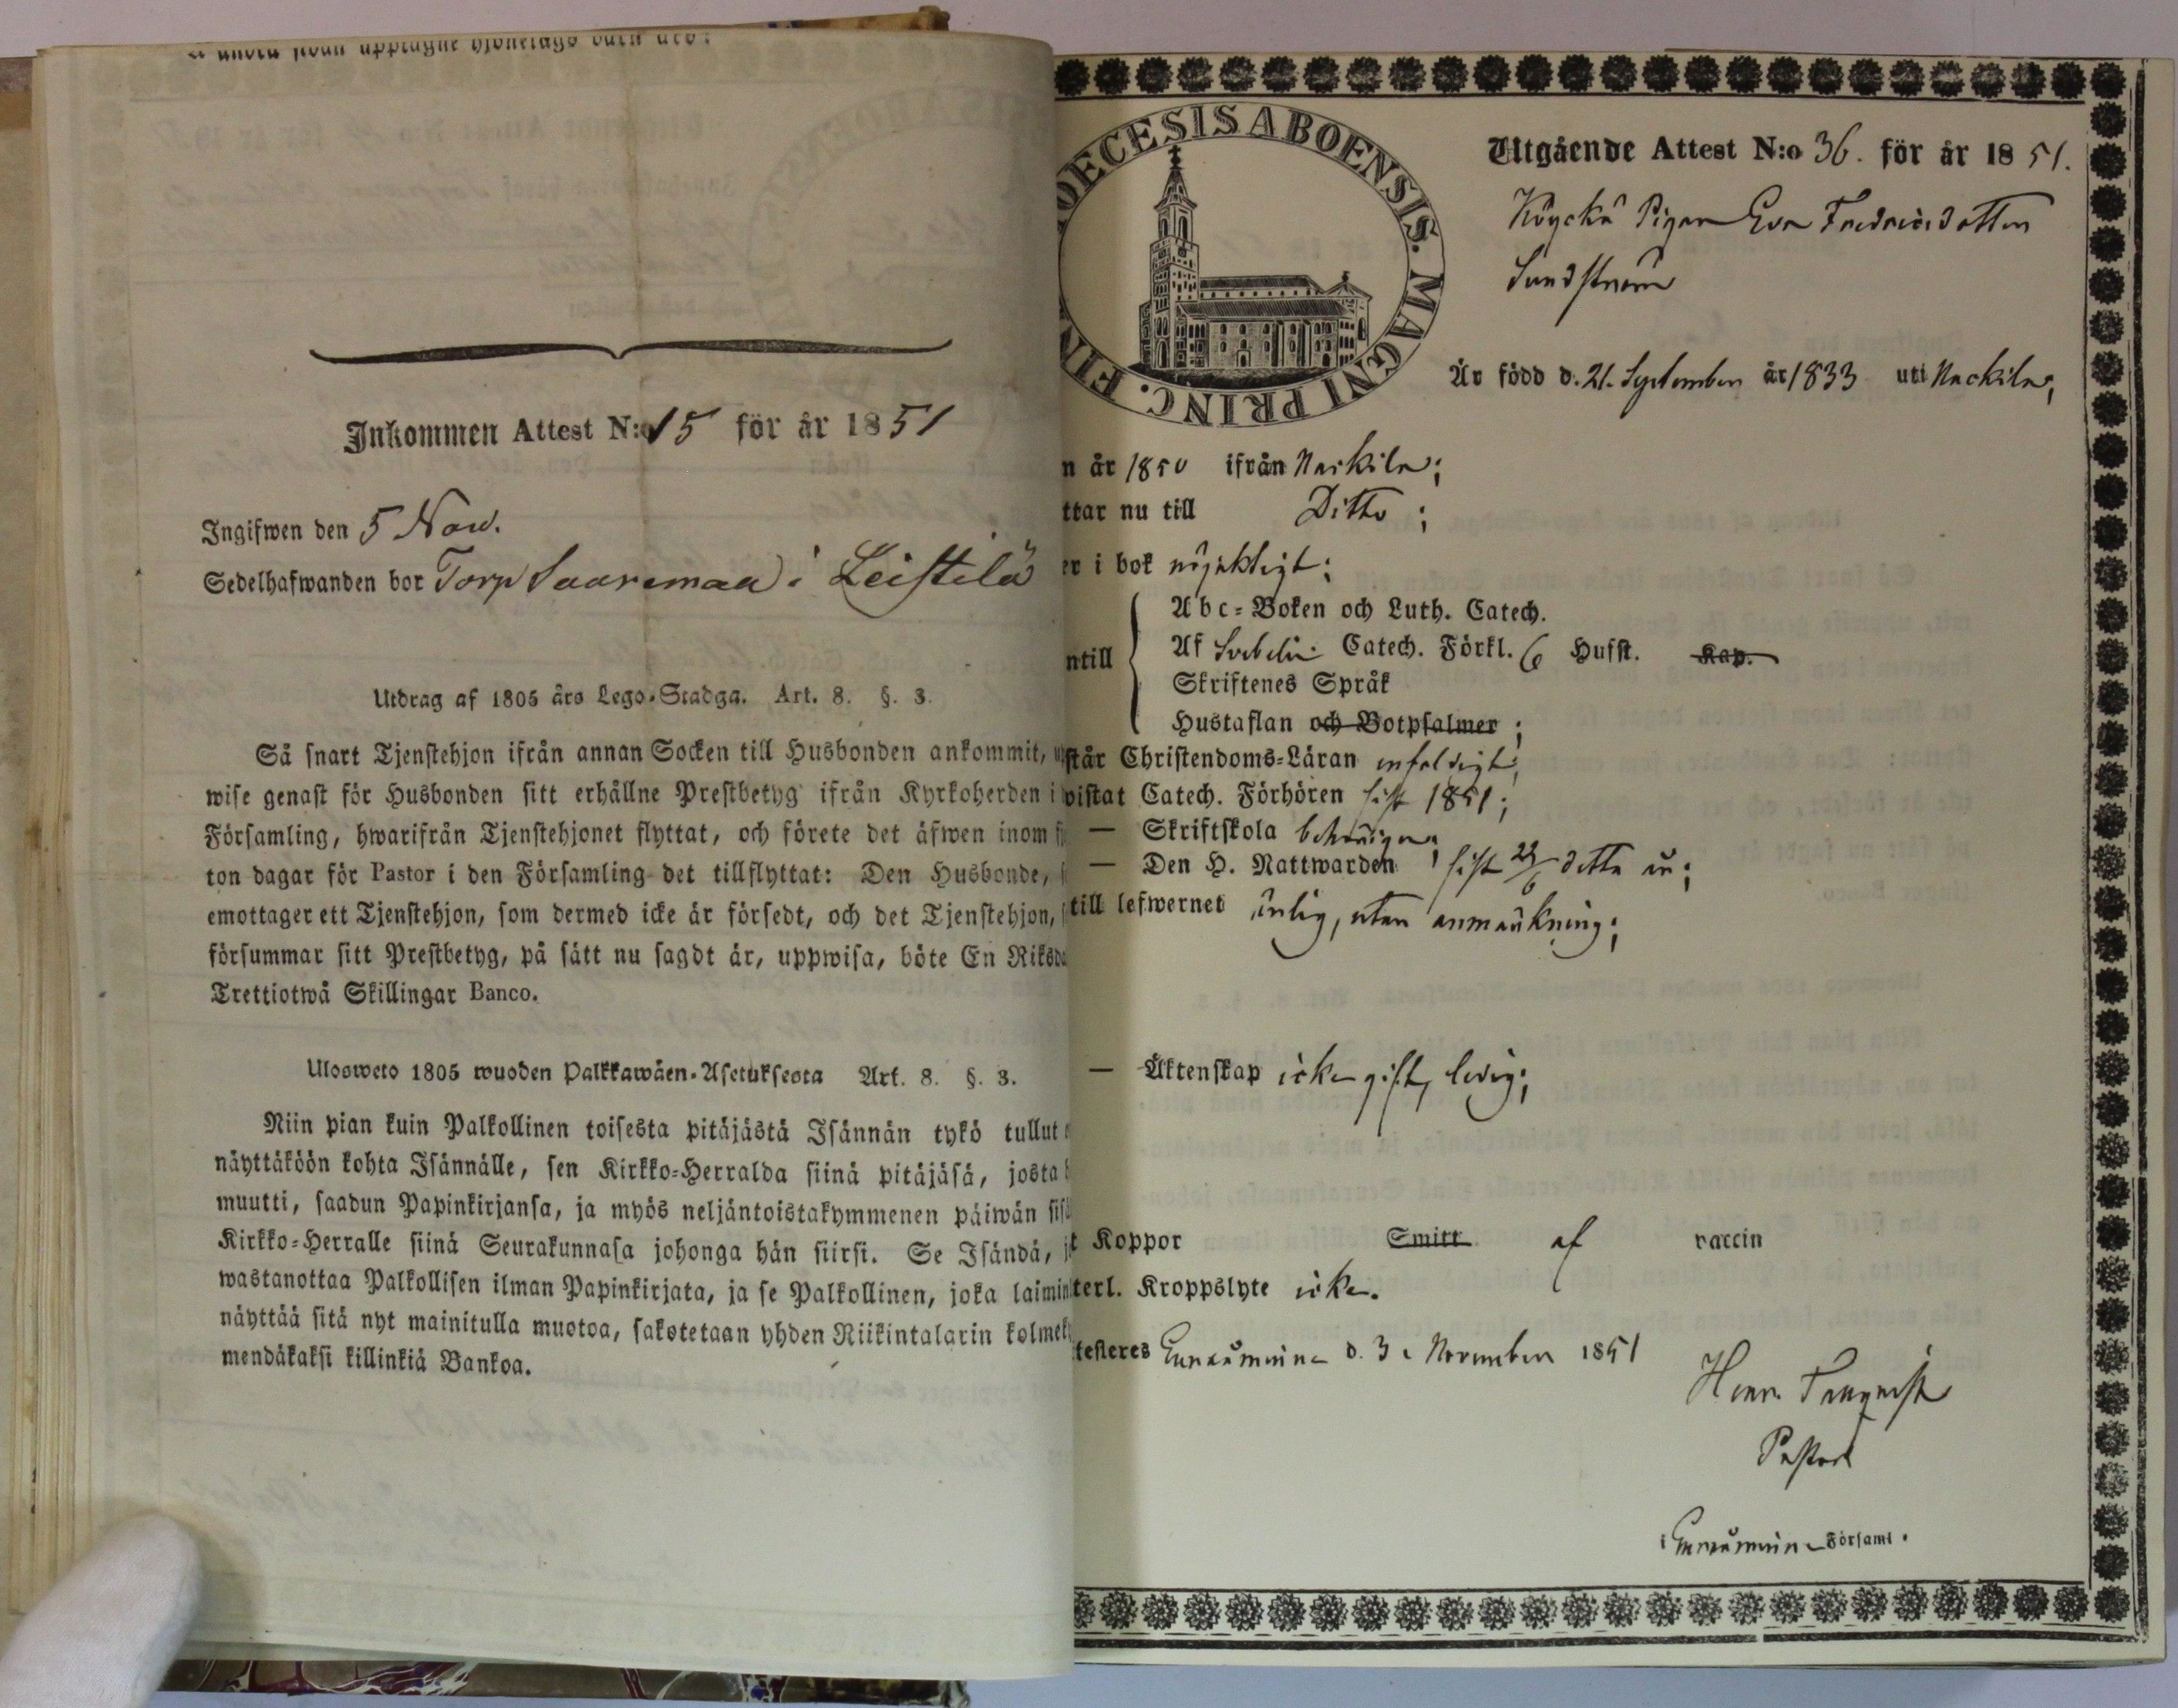 a andra sedan upptagne hjonelags barn äro:
Inkommen Attest N:o 15 för år 1851
Ingifwen den 5 Nov.
Sedelhafwanden bor Torp Saaremaa i Leistilä
Utdrag af 1805 års Lego-Stadga. Art. 8. §. 3.
Så snart Tjenstehjon ifrån annan Socken till Husbonden ankommit, u
wise genast för Husbonden sitt erhållne Prestbetyg ifrån Kyrkoherden i
Församling, hwarifrån Tjenstehjonet flyttat, och förete det äfwen inom f
ton dagar för Pastor i den Församling det tillflyttat: Den Husbonde, s
emottager ett Tjenstehjon, som dermed icke är försedt, och det Tjenstehjon, s
försummar sitt Prestbetyg, på sätt nu sagdt är, uppwisa, böte En Riksda
Trettiotwå Skillingar Banco.
Ulosweto 1805 wuoden Palkkawäen-Asetuksesta Art. 8. §. 3.
Niin pian kuin Palkollinen toisesta pitäjästä Isännän tykö tullut
näyttäköön kohta Isännälle, sen Kirkko-Herralda siinä pitäjäsä, josta h
muutti, saadun Papinkirjansa, ja myös neljäntoistakymmenen päiwän sisä
Kirkko-Herralle siinä Seurakunnasa johonga hän siirsi. Se Isändä, j
wastanottaa Palkollisen ilman Papinkirjata, ja se Palkollinen, joka laimin
näyttää sitä nyt mainitulla muotoa, sakotetaan yhden Riikintalarin kolmek
mendäkaksi killinkiä Bankoa.
OECESIS ABOENSIS. MAGNI PRINC. FIN
Utgående Attest N:o 36. för år 1851.
Köyckä Pigan Eva Fredricsdotter
Sundström
Är född d. 21. September år 1833 uti Nackila;
n år 1850 ifrån Nackila;
ttar nu till Ditto;
er i bok nöjaktigt;
ntill
Abc-Boken och Luth. Catech.
Af Svebelii Catech. Förkl. 6 Hufst. Kap.
Skriftenes Språk
Hustaflan och Botpsalmer;
står Christendoms-Läran enfaldigt;
wistat Catech. Förhören sist 1851;
— Skriftskola behörigen;
— Den H. Nattwarden sist 22/6 detta år;
till lefwernet ärlig, utan anmärkning;
— Äktenskap icke gift, ledig;
t Koppor Smitt af vaccin
terl. Kroppslyte icke.
testeres Eura d. 3 November 1851
Henr.
Pastor
i Församl.